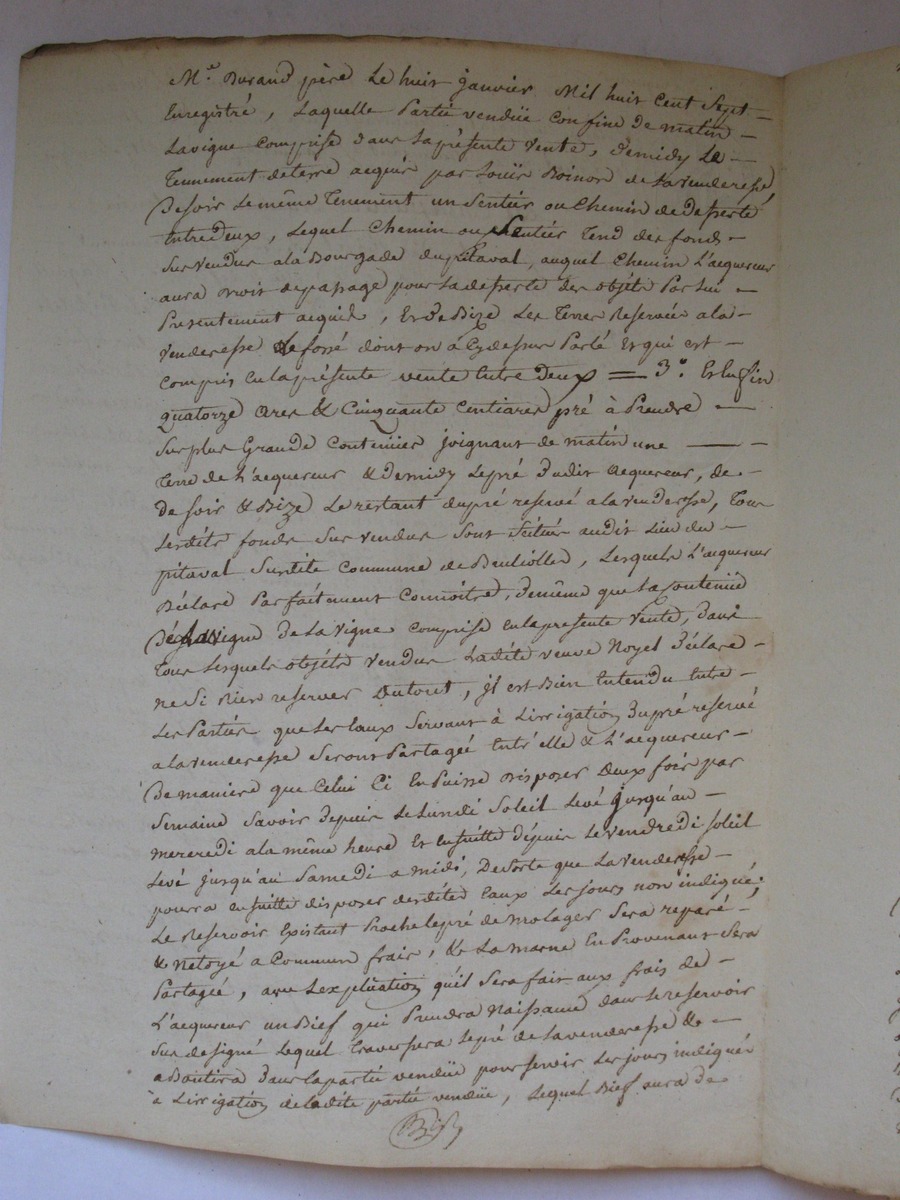 Me. Durand père Le huit janvier Mil huit Cent Sept —
Enregistré, Laquelle Partie vendüe confine De matin —
La vigne comprise dans La présente Vente, De midy Le —
Tennement de terre acquis par Louis Boinon de La venderesse,
De soir Le même Tenement un Sentier ou Chemin de deserte
Entredeux, Lequel Chemin ou Sentier Tend des fonds —
Sus vendus a la Bourgade du pitaval, auquel Chemin L'acquereur
aura droit de passage pour La deserte des objets Par Lui —
Presentement acquis, Et de Bize Les Terres Reservées a la —
Venderesse Le fossé dont on à Cy dessus Parlé Et qui est —
Compris En la présente vente Entre Deux = 3°. Et Enfin
quatorze Ares & Cinquante Centiares pré à Prendre —
Sur plus Grande Contenüe joignant de matin une —
Terre de L'acquereur & De midy Le pré Dudit Acquereur, de —
De soir & Bize Le restant du pré reservé a la venderesse, Tous
Lesdits fonds Sus vendus Sont Scitués audit Lieu du —
pitaval Susdite Commune de , Lesquels L'acquereur
Déclare Parfaitement Connoitre, De même que La Contenüe
De La Vigne comprise En la presente Vente, Dans
Tous Lesquels objets Vendus Ladite veuve Noyel Déclare —
ne Si Rien reserver Du tout, jl est Bien Entendu Entre —
Les Parties que Les Eaux Servant à L'irrigation Du pré reservé
a la venderesse Seront Partagée Entr'elle & L'acquereur —
De maniere que Celui Ci En Puisse Disposer Deux fois par
Semaine Savoir Depuis Le Lundi Soleil Levé jusqu'au —
mercredi a la même heure Et Ensuitte Dépuis Le vendredi soleil
Levé jusqu'au Samedi a midi, De Sorte que La Venderesse —
pourra Ensuitte disposer desdites Eaux Les jours non indiqué;
Le Reservoir Existant Proche Le pré de Sera reparé —
& Netoyé a Commun frais, & La marne En Provenant Sera
Partagée, avec Explication qu'il Sera fait aux frais de —
L'acquereur un Bief qui Prendra Naissance dans Le reservoir
Sus designé Lequel Traversera Le pré de La venderesse & —
aboutira Dans La partie vendüe pour servir Les jours indiqués
à L'irrigation de ladite partie vendüe, Lequel Bief aura De